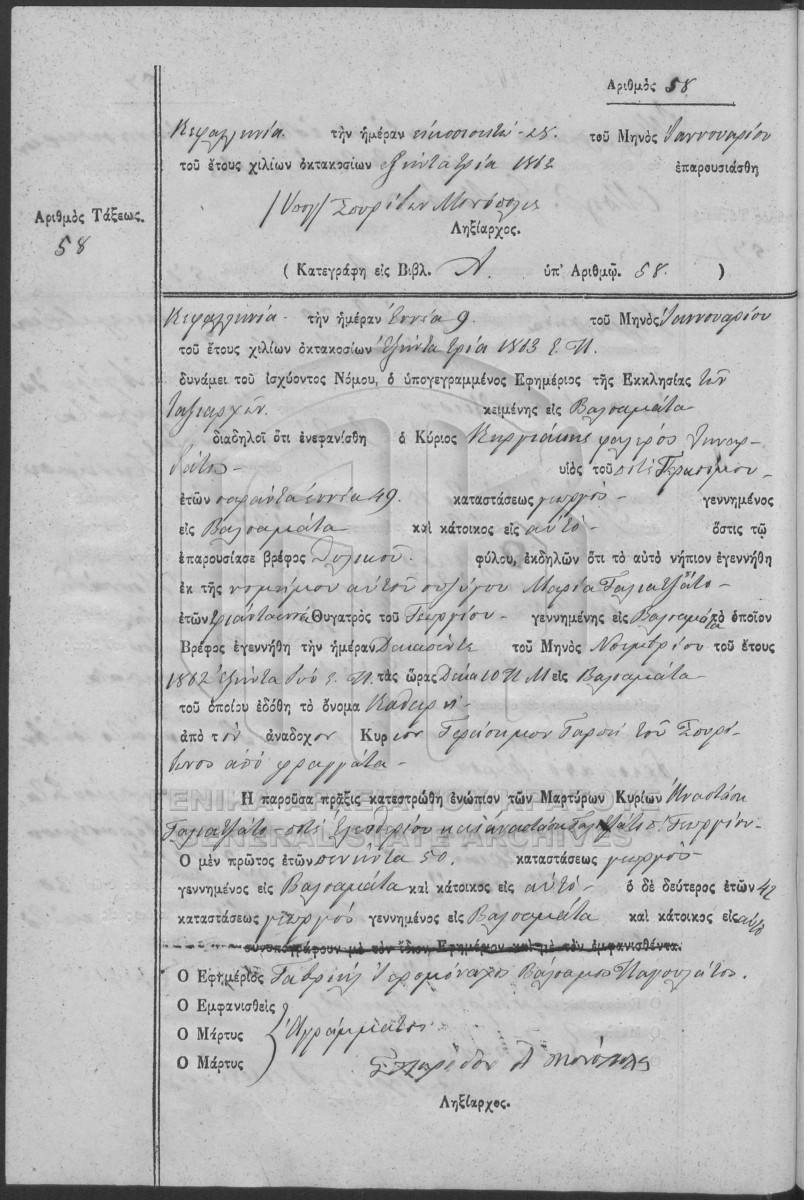 Ἀριθμὸς 58
Κεφαλληνία τὴν ἡμέραν εἰκοσιοκτώ - 28. τοῦ Μηνὸς Ἰαννουαρίου
τοῦ ἔτους χιλίων ὀκτακοσίων ἑξήντα τρία 1863 ἐπαρουσιάσθη
Ἀριθμὸς Τάξεως.
58
/Υπογ/ Σπυρίδων Μονόπολις
Ληξίαρχος.
( Κατεγράφη εἰς Βιβλ. Α. ὑπ' Ἀριθμῷ. 58. )
Κεφαλληνία - τὴν ἡμέραν ἐννέα 9. τοῦ Μηνὸς Ἰαννουαρίου
τοῦ ἔτους χιλίων ὀκτακοσίων ἑξήντα τρία 1863 Ε. Π.
δυνάμει τοῦ ἰσχύοντος Νόμου, ὁ ὑπογεγραμμένος Ἐφημέριος τῆς Ἐκκλησίας τῶν
Ταξιαρχῶν. κειμένης εἰς Βαλσαμάτα
διαδηλοῖ ὅτι ἐνεφανίσθη ὁ Κύριος
υἱὸς τοῦ ποτὲ Γερασίμου -
ἐτῶν σαράντα ἐννέα 49. καταστάσεως γεωργὸς - γεννημένος
εἰς Βαλσαμάτα καὶ κάτοικος εἰς αὐτὸ - ὅστις τῷ
ἐπαρουσίασε βρέφος θηλικοῦ φύλου, ἐκδηλῶν ὅτι τὸ αὐτὸ νήπιον ἐγεννήθη
ἐκ τῆς νομήμου αὐτοῦ συζύγου Μαρία Γαλιατζάτο -
ἐτῶν Θυγατρὸς τοῦ Γεωργίου - γεννημένης εἰς Βαλσαμάτα τὸ ὁποῖον
Βρέφος ἐγεννήθη τὴν ἡμέραν Δεκαπέντε τοῦ Μηνὸς Νοεμβρίου τοῦ ἔτους
1862 ἑξήντα δύο Ε. Π. τὰς ὥρας Δέκα 10 Π Μ εἰς Βαλσαμάτα
τοῦ ὁποίου ἐδόθη τὸ ὄνομα
ἀπὸ τὸν ἀνάδοχον Κύριον Γεράσιμον τοῦ Σπυρί-
δωνος ἀπὸ φραγγάτα -
Ἡ παροῦσα πρᾶξις κατεστρώθη ἐνώπιον τῶν Μαρτύρων Κυρίων Ἀναστάση
Γαλιατζάτο - ποτὲ Ἐλευθερίου καὶ ἀναστάση Γαλιατζάτο Γεωργίου -
ΓΕΝΙΚΑ ΑΡΧΕΙΑ ΤΟΥ ΚΡΑΤΟΥΣ
GENERAL STATE ARCHIVES
Ὁ μὲν πρῶτος ἐτῶν πενήντα 50. καταστάσεως γεωργὸς -
γεννημένος εἰς Βαλσαμάτα καὶ κάτοικος εἰς αὐτὸ - ὁ δὲ δεύτερος ἐτῶν 42
καταστάσεως γεωργὸς γεννημένος εἰς Βαλσαμάτα καὶ κάτοικος εἰς αὐτὸ
συνυπογράφουν μὲ τὸν ἴδιον Ἐφημέριον καὶ μὲ τὸν ἐμφανισθέντα.
Ὁ Ἐφημέριος Γαβριὴλ Ἱερομόναχος Βάλσαμος
Ὁ Ἐμφανισθεὶς
Ὁ Μάρτυς Ἀγράμματοι
Ὁ Μάρτυς
Σπυρίδων Α Μονόπολις
Ληξίαρχος.